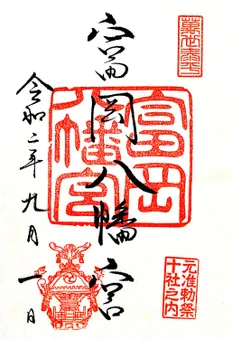 萬世太平
富岡八幡宮
富岡八幡宮
元准勅祭
十社之内
令和二年九月一日